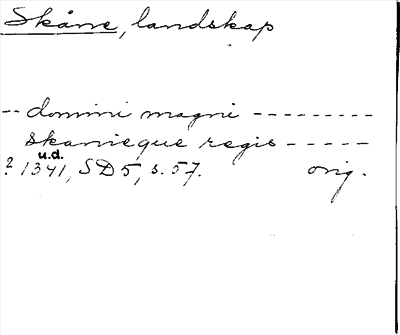 Skåne, landskap
-- domini magni ---------
skanieque regis -----
u.d.
? 1341, SD 5, s. 57. orig.